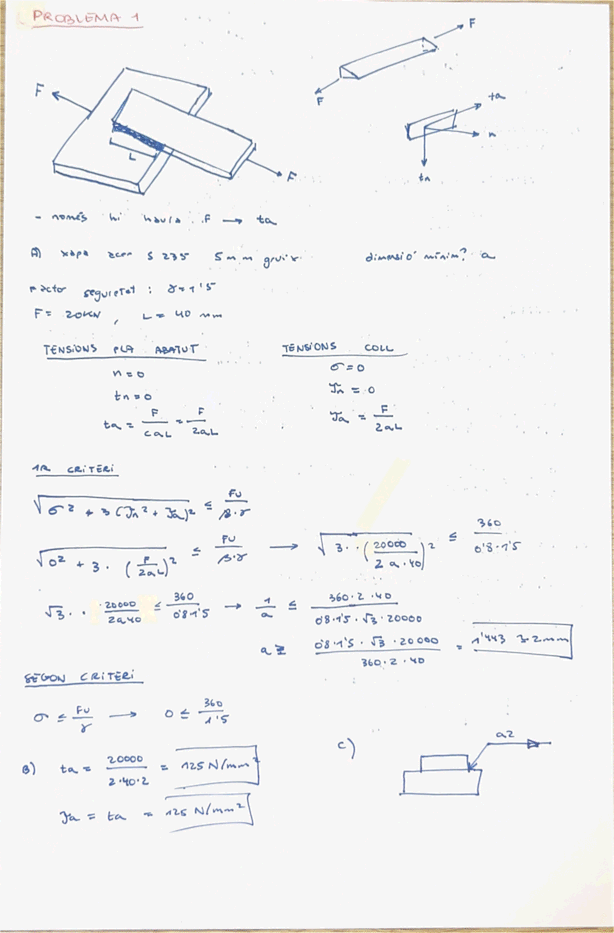 PROBLEMA 1
F
F
F
ta
n
tn
F
L
F
- només hi haurà F → ta
A) xapa acer S 235 5mm gruix dimensió mínim? a
Factor seguretat: γ=1'5
F= 20KN, L= 40 mm
TENSIONS PLA ABATUT TENSIONS COLL
n=0 σ=0
tn=0 Jn = 0
ta = F/(caL) = F/(2aL) Ja = F/(2aL)
1R CRITERI
√(σ² + 3(Jn² + Ja)²) ≤ Fu/(β·γ)
√(0² + 3·(F/(2aL))²) ≤ Fu/(β·γ) → √(3··(20000/(2·a·40))²) ≤ 360/(0'8·1'5)
√3 ·· 20000/(2a40) ≤ 360/(0'8·1'5) → 1/a ≤ (360·2·40)/(0'8·1'5·√3·20000)
a ≥ (0'8·1'5·√3·20000)/(360·2·40) = 1'443 ≥ 2mm
SEGON CRITERI
σ ≤ Fu/γ → 0 ≤ 360/1'5
B) ta = 20000/(2·40·2) = 125 N/mm²
Ja = ta = 125 N/mm²
C) a2